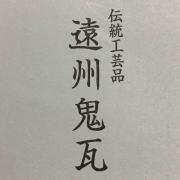 伝統工芸品
遠州鬼瓦